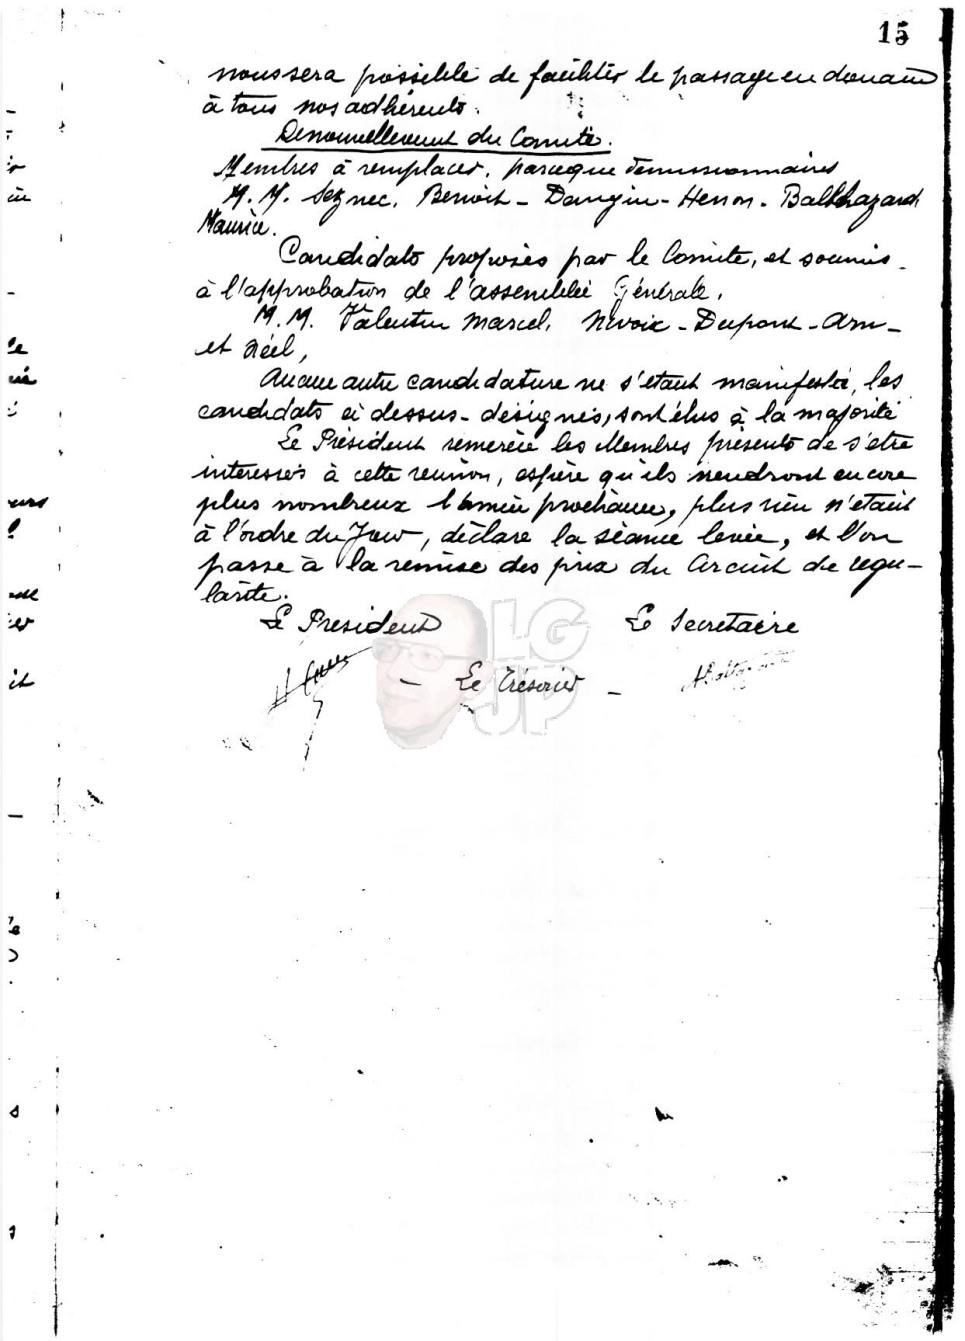 15
nous sera possible de faciliter le passage en douane
à tous nos adhérents.
Renouvellement du Comité.
Membres à remplacer, parceque démissionnaires
M.M. Seznec, Benoit - Dangin - Henon - Balthazard
Maurice.
Candidats proposés par le Comité, et soumis
à l'approbation de l'assemblée Générale,
M.M. Valentin Marcel, Nivoix - Dupont - Arn-
et Néel,
Aucune autre candidature ne s'étant manifestée, les
candidats ci dessus - désignés, sont élus à la majorité
Le Président remercie les Membres présents de s'être
interessés à cette réunion, espère qu'ils viendront encore
plus nombreux l'année prochaine, plus rien n'étant
à l'ordre du Jour, déclare la séance levée, et l'on
passe à la remise des prix du Circuit de régu-
larité.
Le Président Le Secretaire
- Le Trésorier -
LG
JP